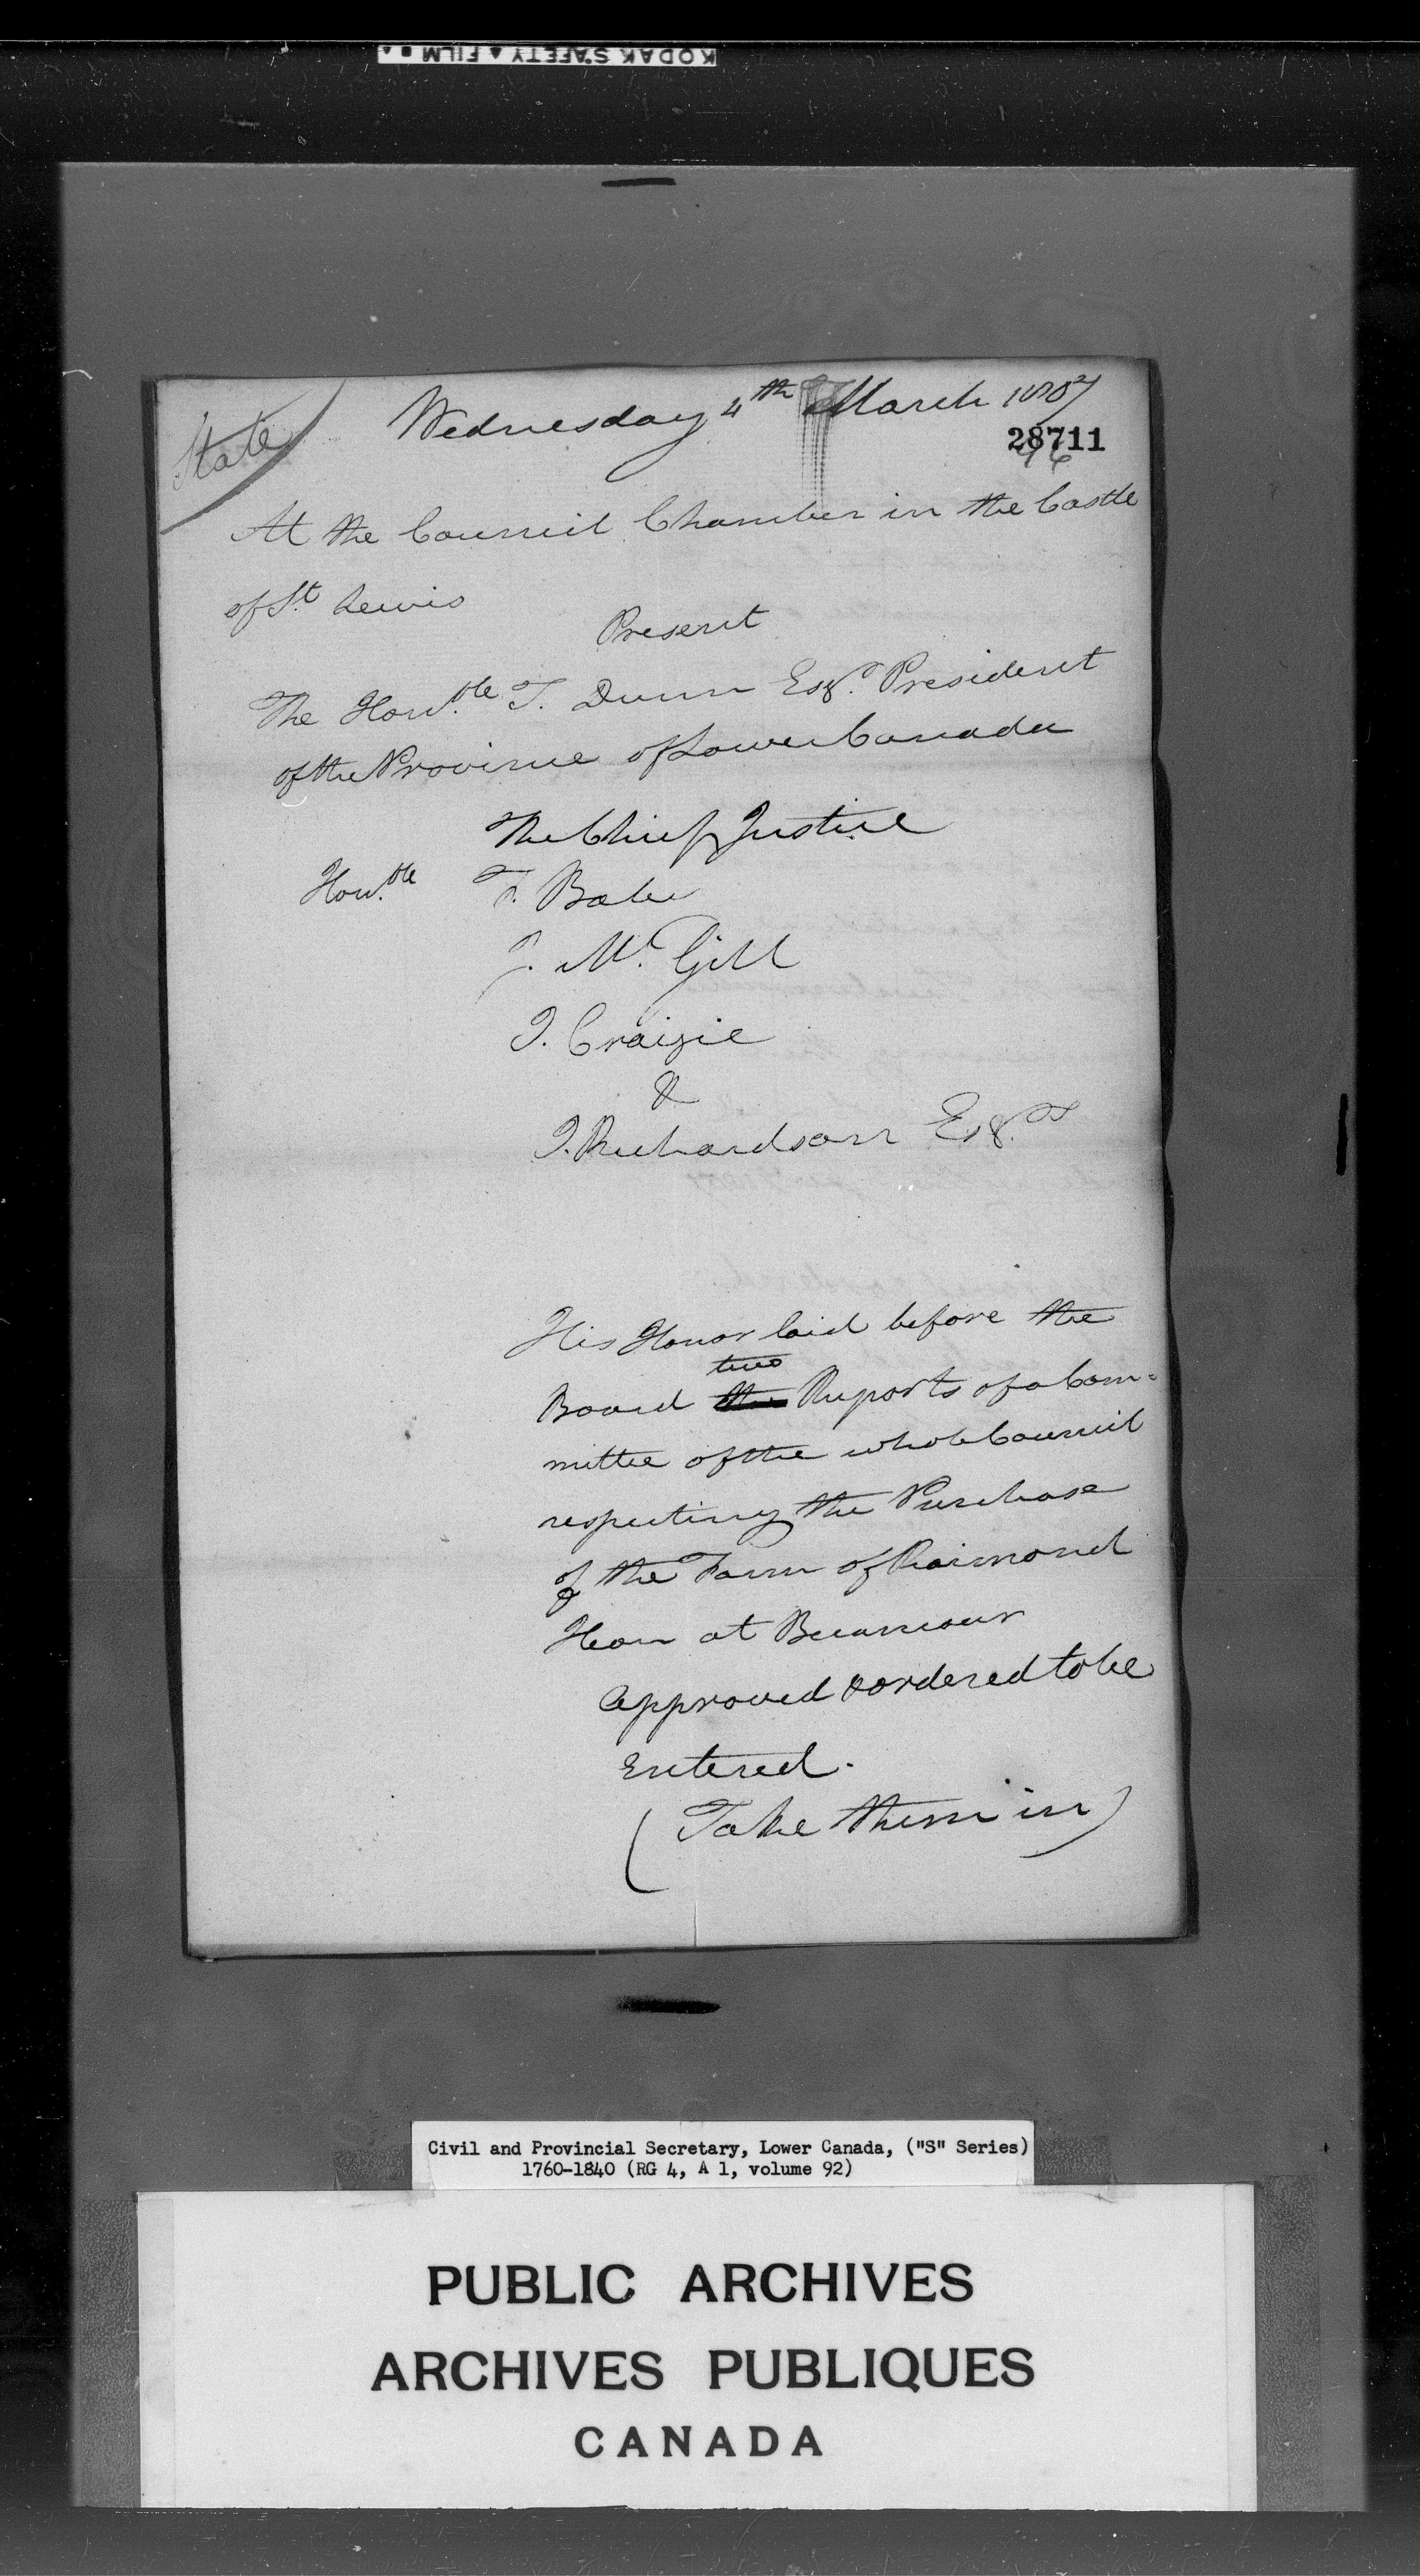 KODAK SAFETY ▲ FILM
State
Wednesday 4th March 1807
28711
At the Council Chamber in the Castle
of St. Lewis
Present
The Honble. T. Dunn Esqr. President
of the Province of Lower Canada
The Chief Justice
Honble. F. Babe
J. Mc. Gill
J. Craigie
&
J. Richardson Esqrs
His Honor laid before the
two
Board the Reports of a Com=
mittee of the whole Council
respecting the Purchase
of the Farm of Raimond
at
Approved & ordered to be
Entered.
(Take them in)
Civil and Provincial Secretary, Lower Canada, ("S" Series)
1760-1840 (RG 4, A 1, volume 92)
PUBLIC ARCHIVES
ARCHIVES PUBLIQUES
CANADA